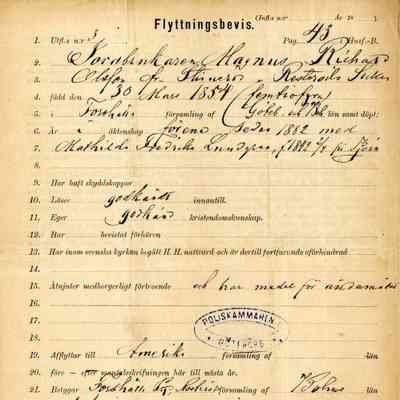 (Infl. n:r År 18 ).
Flyttningsbevis.
1. Utfl. n:r 3. Pag. 43 Husf.-B.
2. Jordbrukaren Magnus Richard
3. Olsson fr.
4. född den 30 Mars 1854 (femtiofyra)
5. i Forshälla församling af Göteb. och Boh. län samt döpt;
6. Är i äktenskap förenad sedan 1882 med
7. Mathilda Fredrika
8.
9. Har haft skyddskoppor
10. Läser godkändt innantill.
11. Eger godkänd kristendomskunskap.
12. Har bevistat förhören
13. Har inom svenska kyrkan begått H. H. nattvard och är dertill fortfarande oförhindrad
14.
15. Åtnjuter medborgerligt förtroende och har medel för ändamålet
16.
17.
POLISKAMMAREN
18.
GÖTEBORG
19. Afflyttar till Amerika församling af län
20. före – efter mantalsskrifningen här till nästa år.
21. Betygar Forshälla församling af Bohus